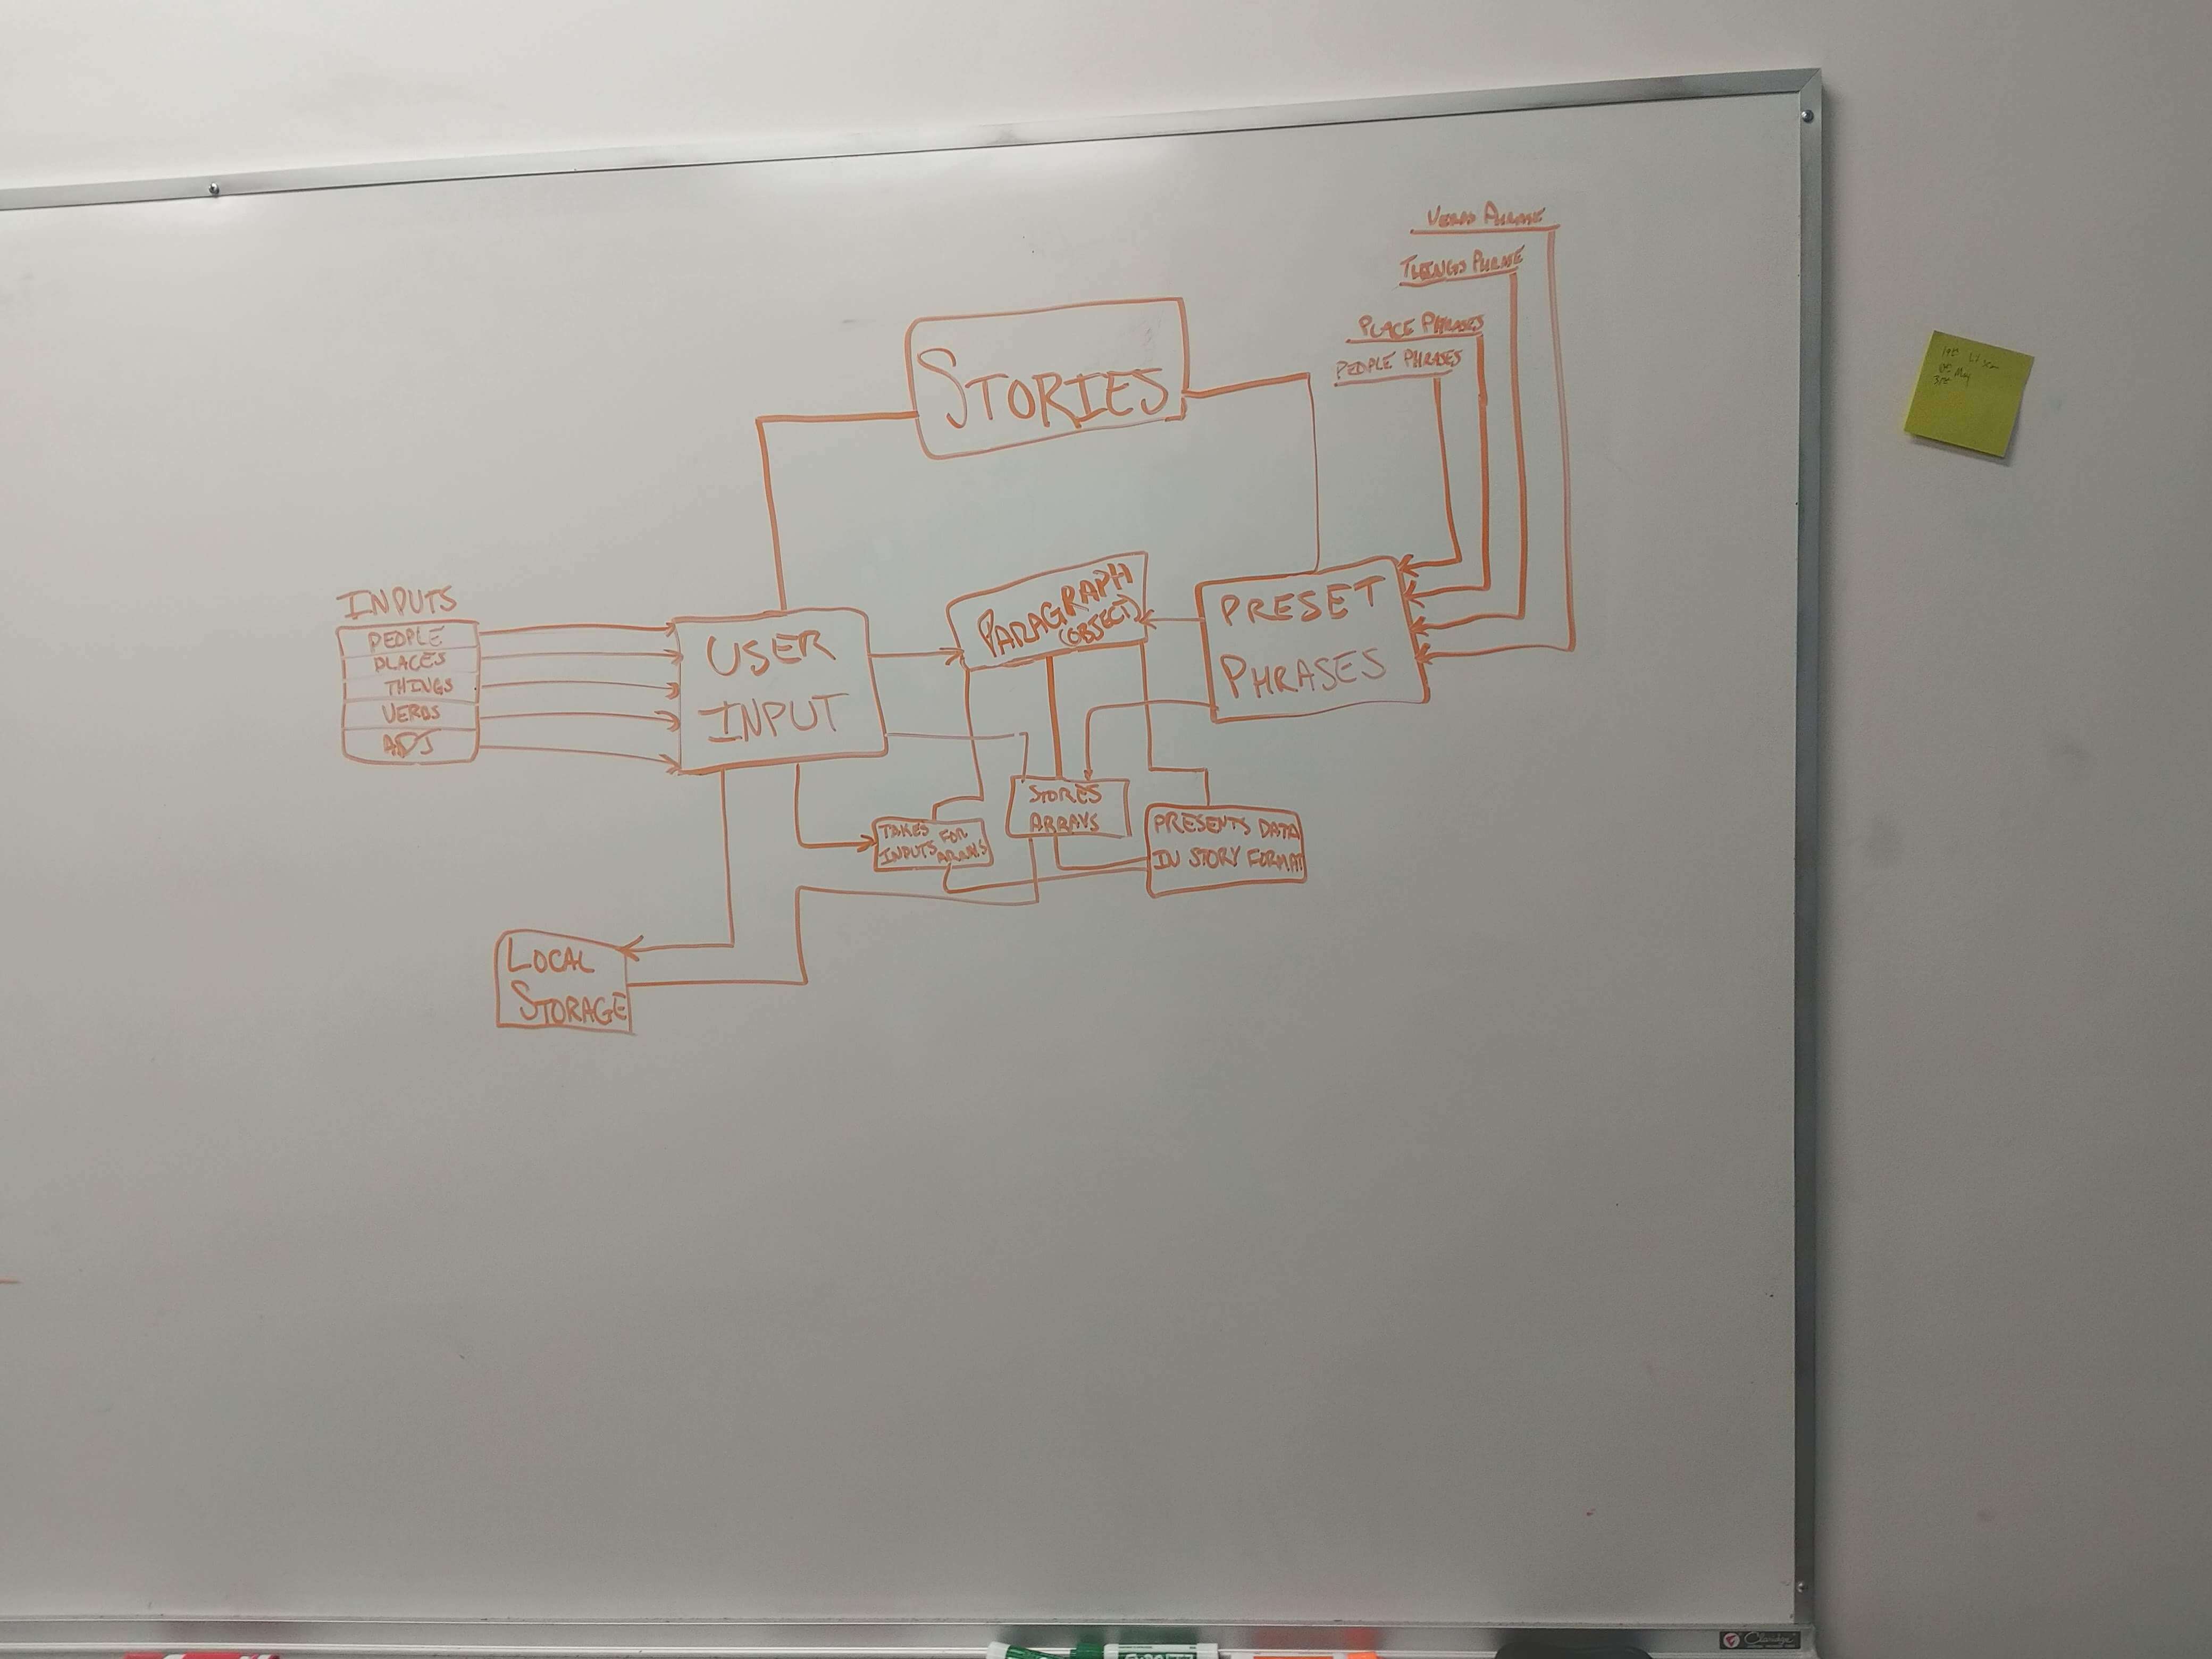 VERBS PHRASE
THINGS PHRASE
PLACE PHRASES
PEOPLE PHRASES
STORIES
INPUTS
PEOPLE
PLACES
THINGS
VERBS
ADJ
USER
INPUT
PARAGRAPH
(OBJECT)
PRESET
PHRASES
TAKES FOR
INPUTS ARRAYS
STORES
ARRAYS
PRESENTS DATA
IN STORY FORMAT
LOCAL
STORAGE
May
Claridge